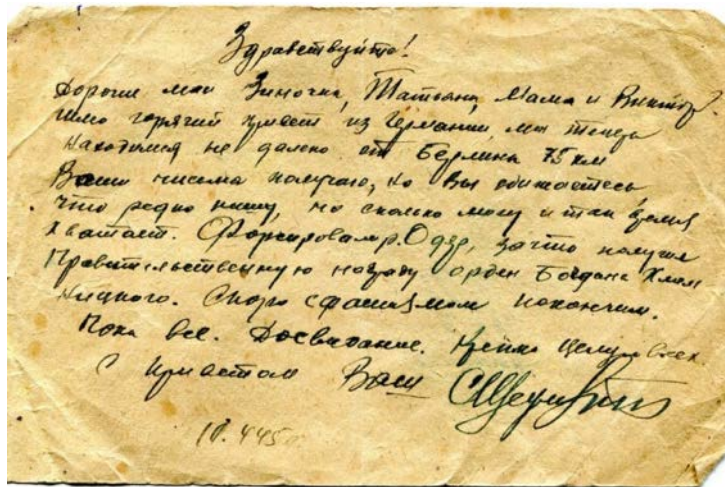 Здравствуйте!
Дорогие мои Зиночка, Татьяна, Мама и Виктор.
Шлю горячий привет из Германии, мы теперь
находимся не далеко от Берлина 75 км
Ваши письма получаю, но Вы обижаетесь
что редко пишу, но сколько могу и так время
хватает. Форсировали р. Одер, за что получил
Правительственную награду орден Богдана Хмель
ницкого. Скоро с фашизмом покончим.
Пока все. Досвидание. Крепко целую всех
С приветом Ваш